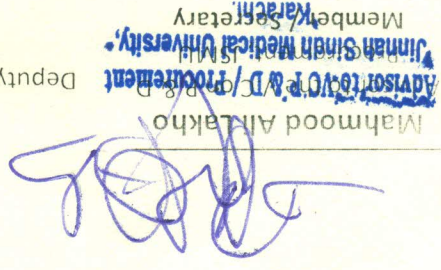 Mahmood Ali Lakho
Advisor to VC P & D / Procurement
Deputy
Jinnah Sindh Medical University,
Karachi.
Member / Secretary